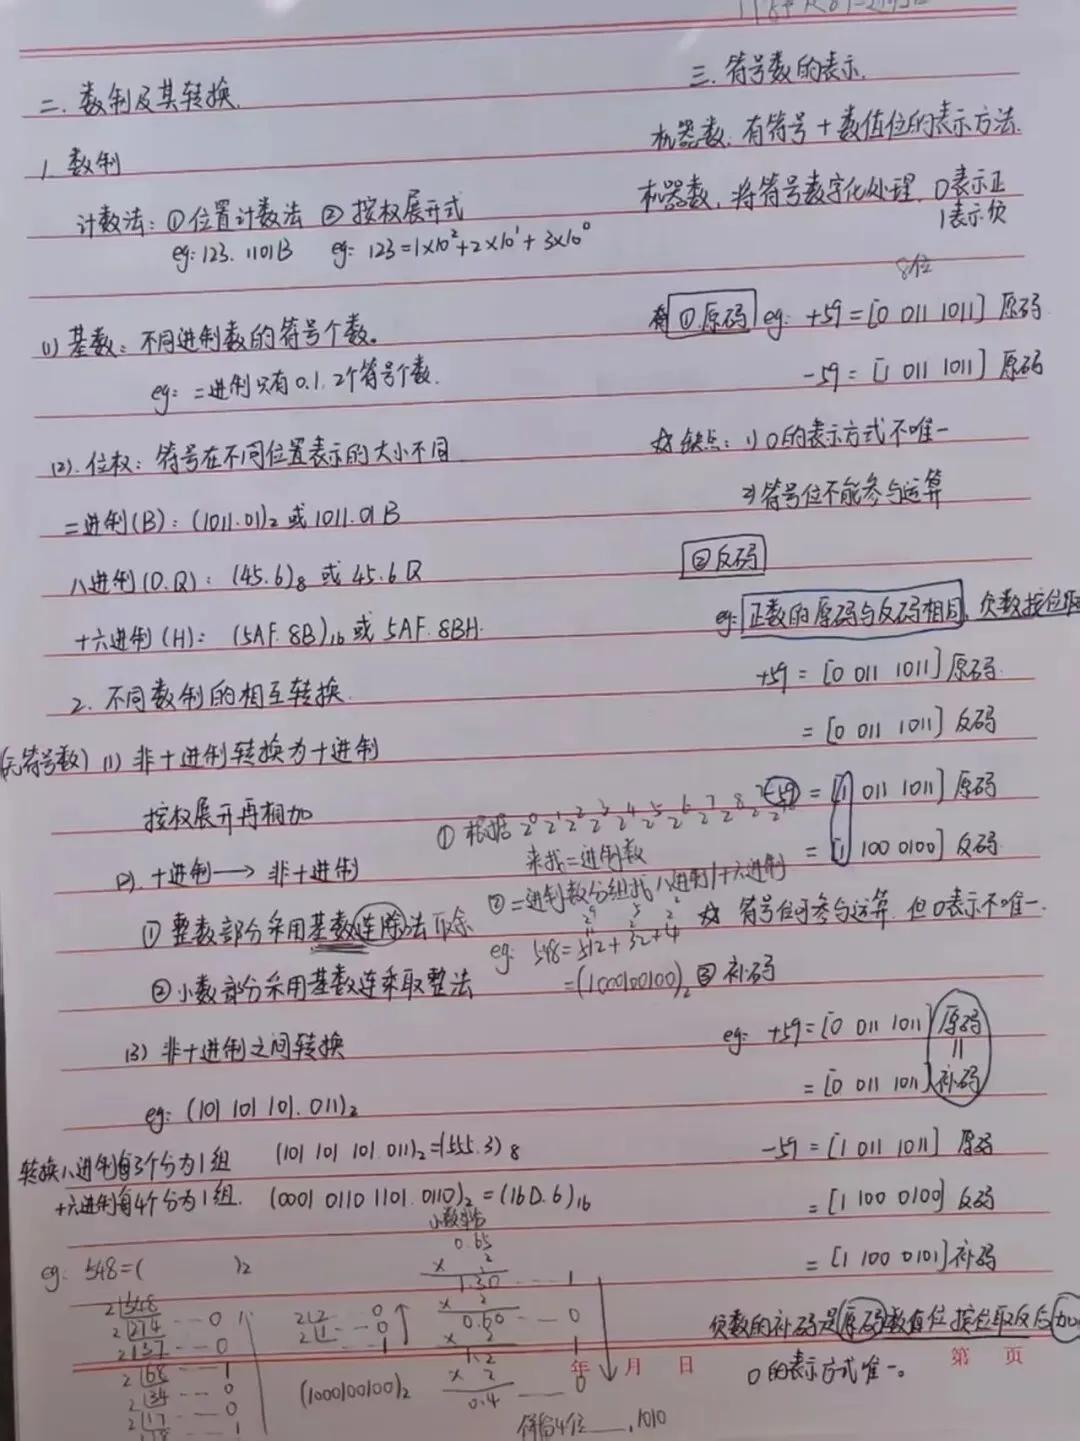 二. 数制及其转换.
1. 数制
计数法: ①位置计数法 ②按权展开式
eg: 123. 1101B eg: 123=1×10²+2×10¹+3×10⁰
(1) 基数: 不同进制数的符号个数。
eg: 二进制只有0.1. 2个符号个数.
(2). 位权: 符号在不同位置表示的大小不同
二进制(B): (1011.01)₂ 或 1011.01B
八进制(O.Q): (45.6)₈ 或 45.6Q
十六进制(H): (5AF.8B)₁₆ 或 5AF.8BH.
2. 不同数制的相互转换.
(无符号数) (1) 非十进制转换为十进制
按权展开再相加
(2). 十进制→非十进制
①整数部分采用基数连除法 取余
②小数部分采用基数连乘取整法
①根据 2⁰ 2¹ 2² 2³ 2⁴ 2⁵ 2⁶ 2⁷ 2⁸
来找二进制数
②二进制数分组找八进制/十六进制
2⁹ 2⁵ 2²
eg: 548=512+32+4
=(1000100100)₂
(3) 非十进制之间转换
eg: (101 101 101. 011)₂
转换八进制每3个分为1组 (101 101 101. 011)₂=(555.3)₈
十六进制每4个分为1组. (0001 0110 1101. 0110)₂=(16D.6)₁₆
eg: 548=( )₂
2 548
2 274 --- 0
2 137 --- 0
2 68 --- 1
2 34 --- 0
2 17 --- 0
--- 1
2 2 --- 0
2 1 --- 0
1
(1000100100)₂
0.65
× 2
1.30 --- 1
× 2
0.60 --- 0
× 2
1.2 1
× 2
0.4 --- 0
.1010
三. 符号数的表示.
机器数. 有符号+数值位的表示方法.
机器数, 将符号数字化处理. 0表示正
1表示负
8位
①原码 eg: +59=[0 011 1011] 原码
-59=[1 011 1011] 原码
缺点: 1) 0的表示方式不唯一
2) 符号位不能参与运算
②反码
eg: 正数的原码与反码相同, 负数按位取
+59=[0 011 1011] 原码.
=[0 011 1011] 反码
-59=[1 011 1011] 原码
=[1 100 0100] 反码
符号位可参与运算. 但0表示不唯一.
③补码
eg: +59=[0 011 1011] 原码
=
=[0 011 1011] 补码
-59=[1 011 1011] 原码
=[1 100 0100] 反码
=[1 100 0101] 补码
负数的补码是原码数值位按位取反后加
0的表示方式唯一。
年 月 日 第 页